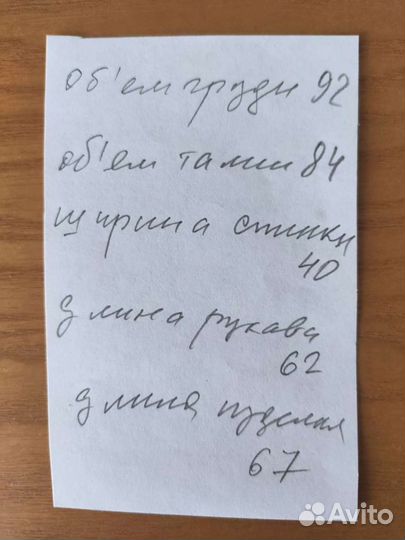 об'ем груди 92
об'ем талии 84
ширина спинки
40
длина рукава
62
длина изделия
67
Avito